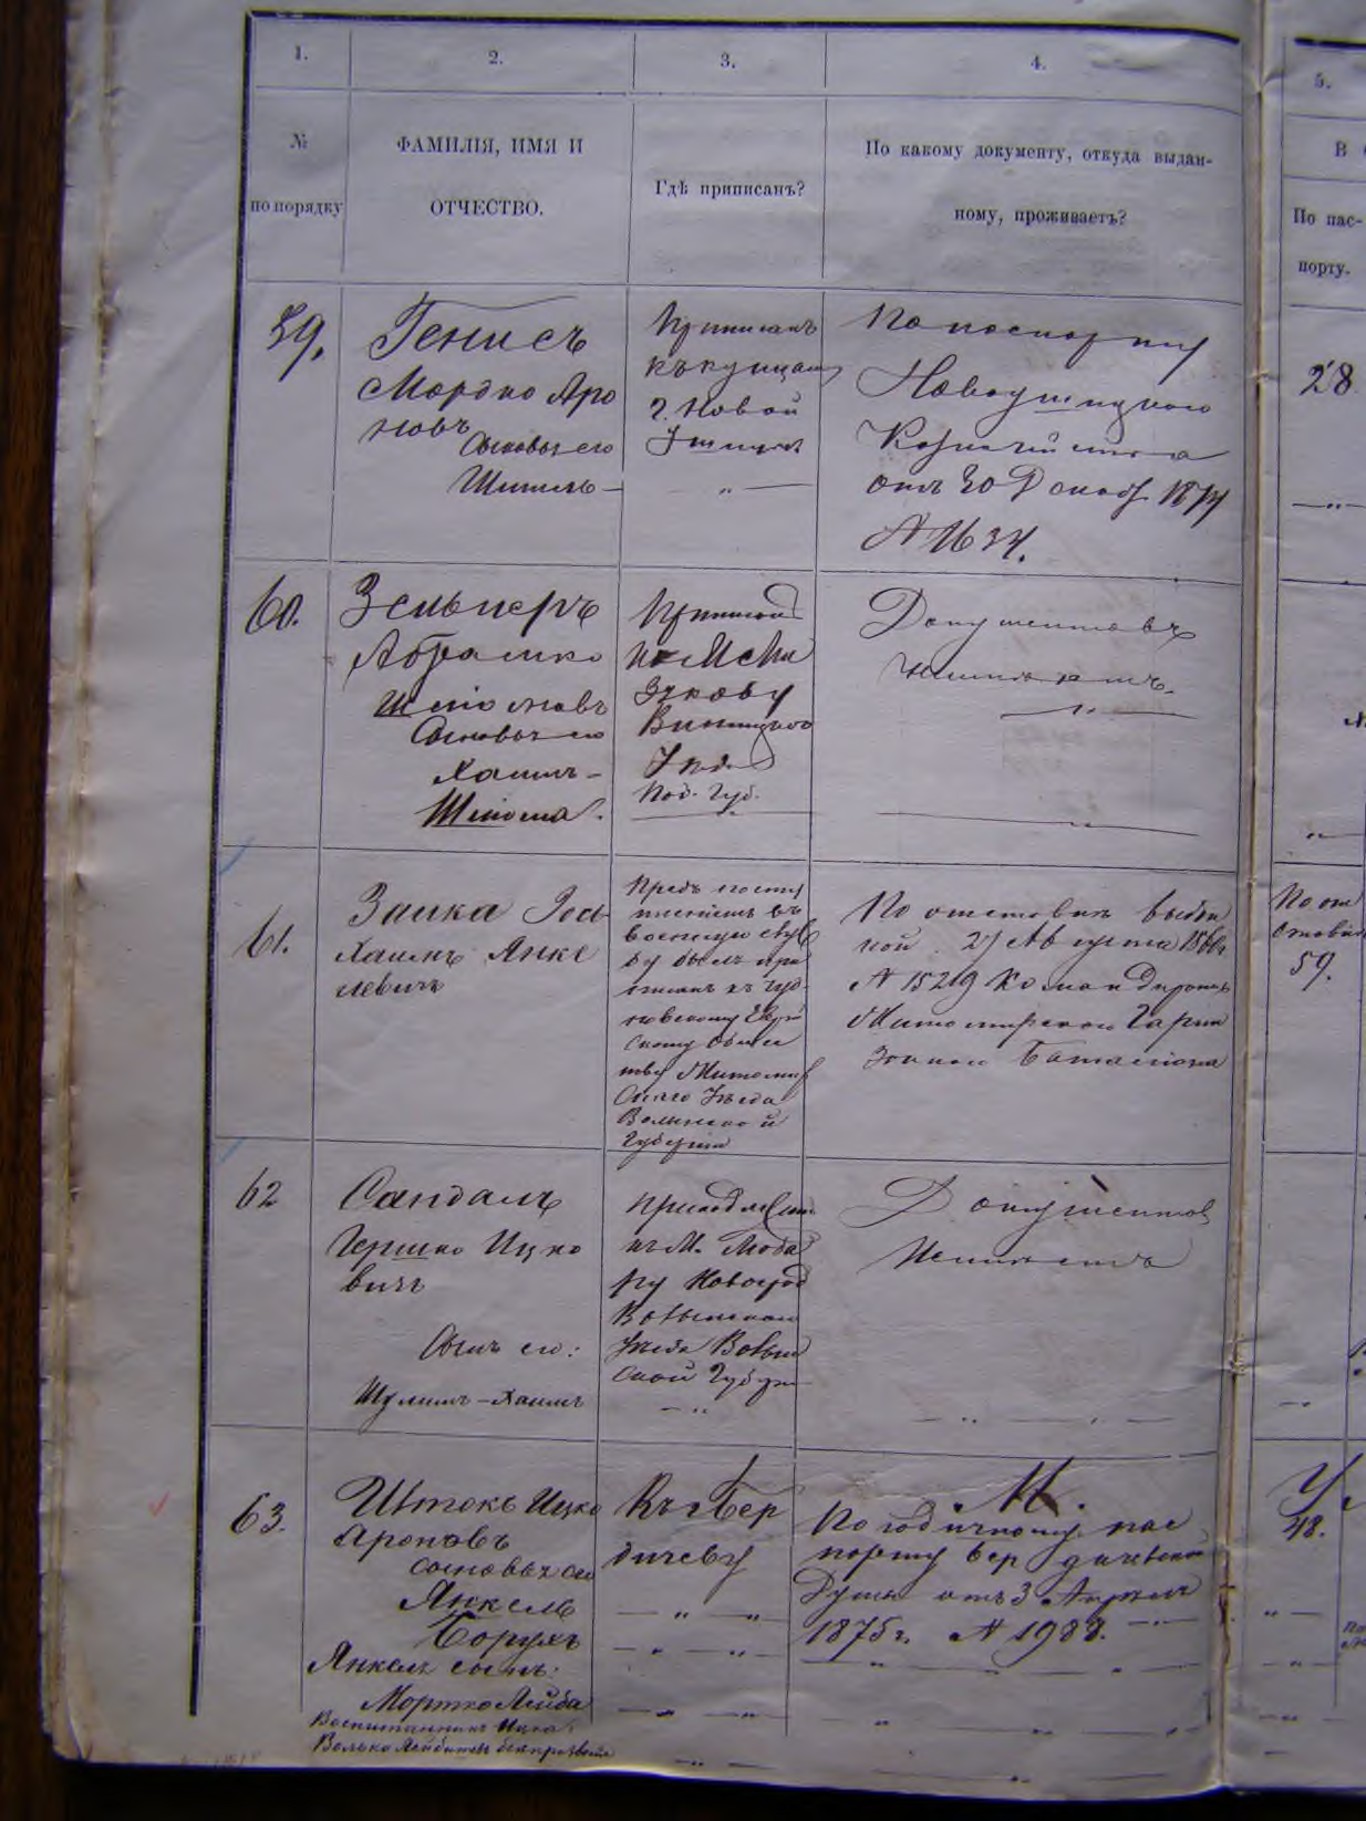 1.
2.
3.
4.
5.
№
по порядку
ФАМИЛІЯ, ИМЯ И
ОТЧЕСТВО.
Гдѣ приписанъ?
По какому документу, откуда выдан-
ному, проживаетъ?
В
По пас-
порту.
59.
Генисъ
Мордко Аро
новъ
Сыновья его
Шмиль
Приписанъ
къ купцамъ
г. Новой
Ушицы
По паспорту
Новоушицкого
Казначейства
отъ 30 Декаб. 1874
№ 1634.
28
60.
Зельцеръ
Абрамко
Шліомовъ
Сыновья его
Хаимъ
Шліома.
Винницкого
Уѣзд.
Под. Губ.
Документовъ
неимѣетъ.
61.
Заика
Хаимъ Янке
левичъ
Предъ посту
пленіемъ въ
военную служ
бу былъ при
писанъ къ Чуд
новскому Евре
скому Общес
тву Житомир
скаго Уѣзда
Волынской
Губерніи
По отставкѣ выдан
ной 27 Августа
№ 15219 Командиромъ
Житомирскаго Гарни
зоннаго Баталіона
По от
ставкѣ
59.
62
Сандалъ
Гершко Ицко
вичъ
Сынъ его:
Шулимъ-Хаимъ
къ М. Люба
ру Новоград
Волынскаго
Уѣзда Волын
ской Губерн
Документов
Неимѣетъ
63.
Штокъ Ицко
Ароновъ
сыновья его
Янкель
Борухъ
Янкеля сынъ:
Мортко Лейба
Воспитанникъ Ицка
Волько Лейбовъ
Къ г Бер
дичеву
По годичному пас
порту Бердичевской
Думы отъ 3 Апрѣля
1875 г. № 1988.
48.